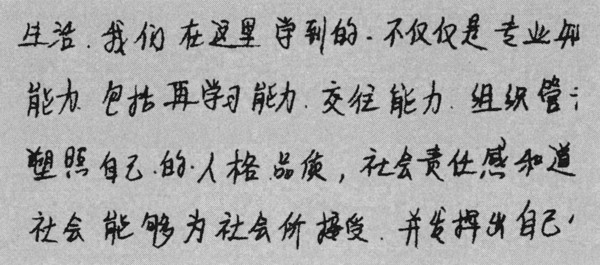 生活.我们在这里学到的.不仅仅是专业
能力.包括再学习能力.交往能力.组织管
塑照自己的人格品质,社会责任感和道
社会能够为社会所接受.并发挥出自己